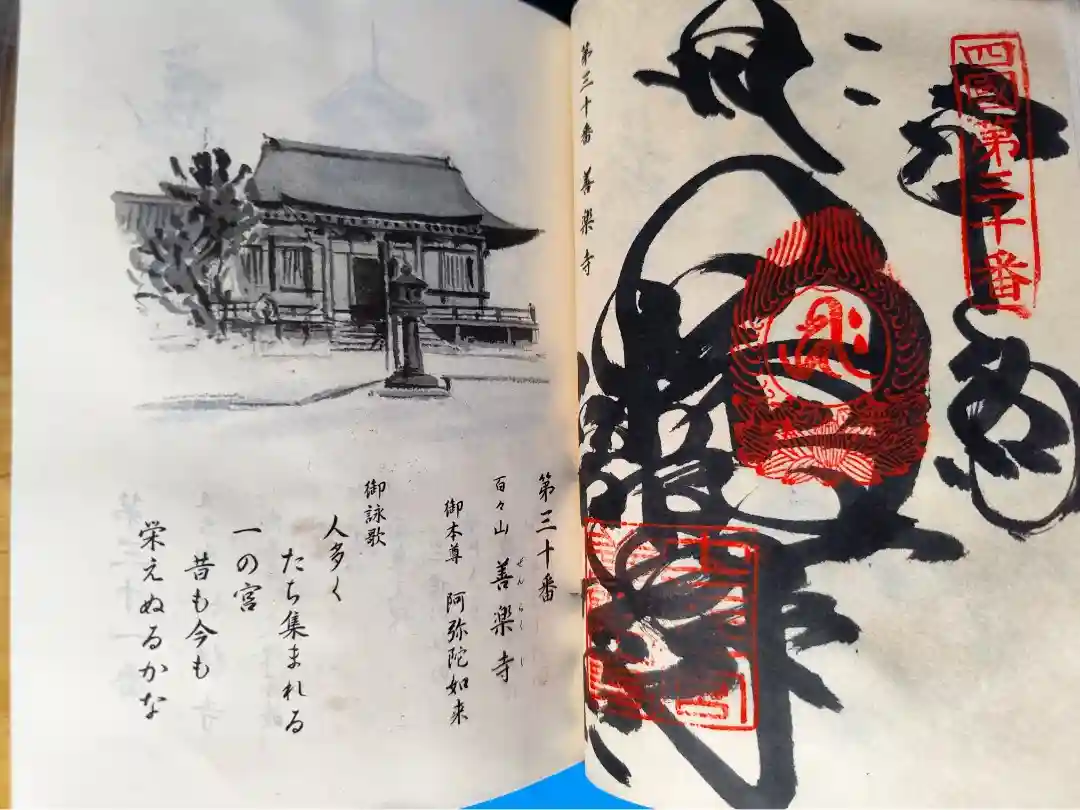 四國第三十番
奉納
第三十番 善楽寺
第三十番
百々山 善楽寺
ぜんらくじ
御本尊 阿弥陀如来
御詠歌
人多く
たち集まれる
一の宮
昔も今も
栄えぬるかな